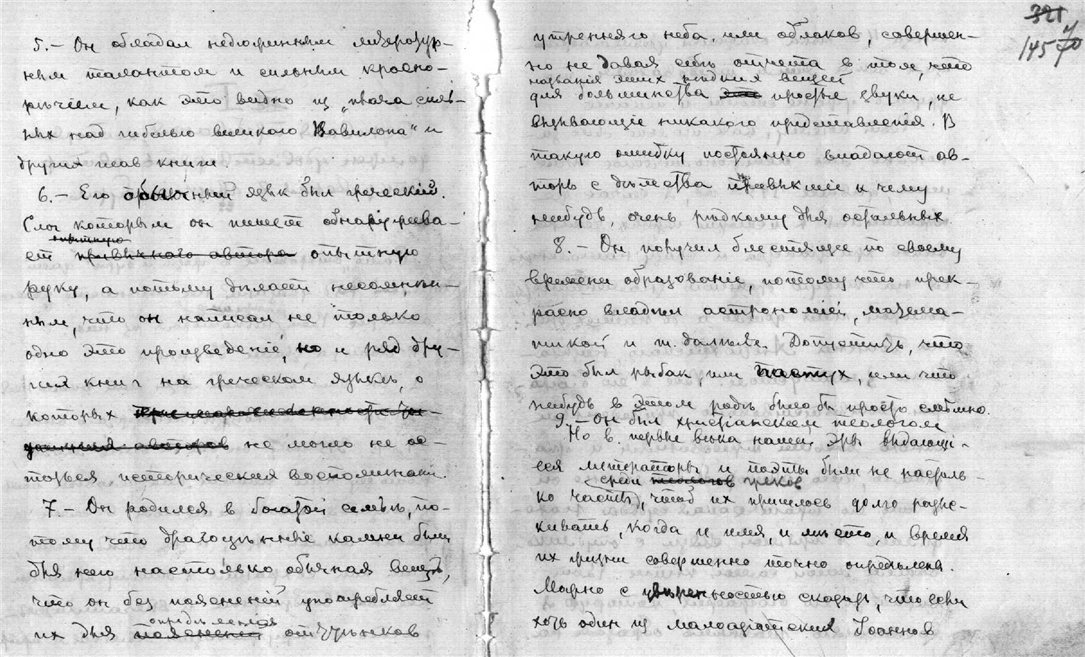 5.– Он обладал недюжинным литератур-
ным талантом и сильным красно-
речием, как это видно из „плача силь-
ных над гибелью великого Вавилона" и
других глав книги.
6.– Его обычный язык был греческій.
Слог которым он пишет обнаружива-
ет опытную
руку, а потому делает несомнен-
ным, что он написал не только
одно это произведеніе, но и ряд дру-
гих книг на греческом языке, о
которых
не могло не ос-
таться исторических воспоминаній.
7.– Он родился в богатой семье, по-
тому что драгоценные камни были
для него настолько обычная вещь,
что он без пояснений употребляет
определенія
их для оттенков
321
1457
утренняго неба, или облаков, совершен-
но не давая себе отчета в том, что
названія этих редких вещей
для большинства простые звуки, не
вызывающіе никакого представленія. В
такую ошибку постоянно впадают ав-
торы с детства привыкшіе к чему
нибудь, очень редкому для остальных.
8.– Он получил блестящее по своему
времени образованіе, потому что прек-
расно владел астрономіей, математи-
тикой и т. далее. Допустить, что
это был рыбак, или пастух, или что
нибудь в этом роде было бы просто смешно.
9.– Он был христіанским теологом
Но в первые века нашей эры выдающі-
еся литераторы и поэты были не настоль-
среди греков
ко часты, чтоб их пришлось долго разыс-
кивать, когда и имя, и место, и время
их жизни совершенно точно определены.
Можно с уверенностью сказать, что если
хоть один из малоазіатских Іоаннов